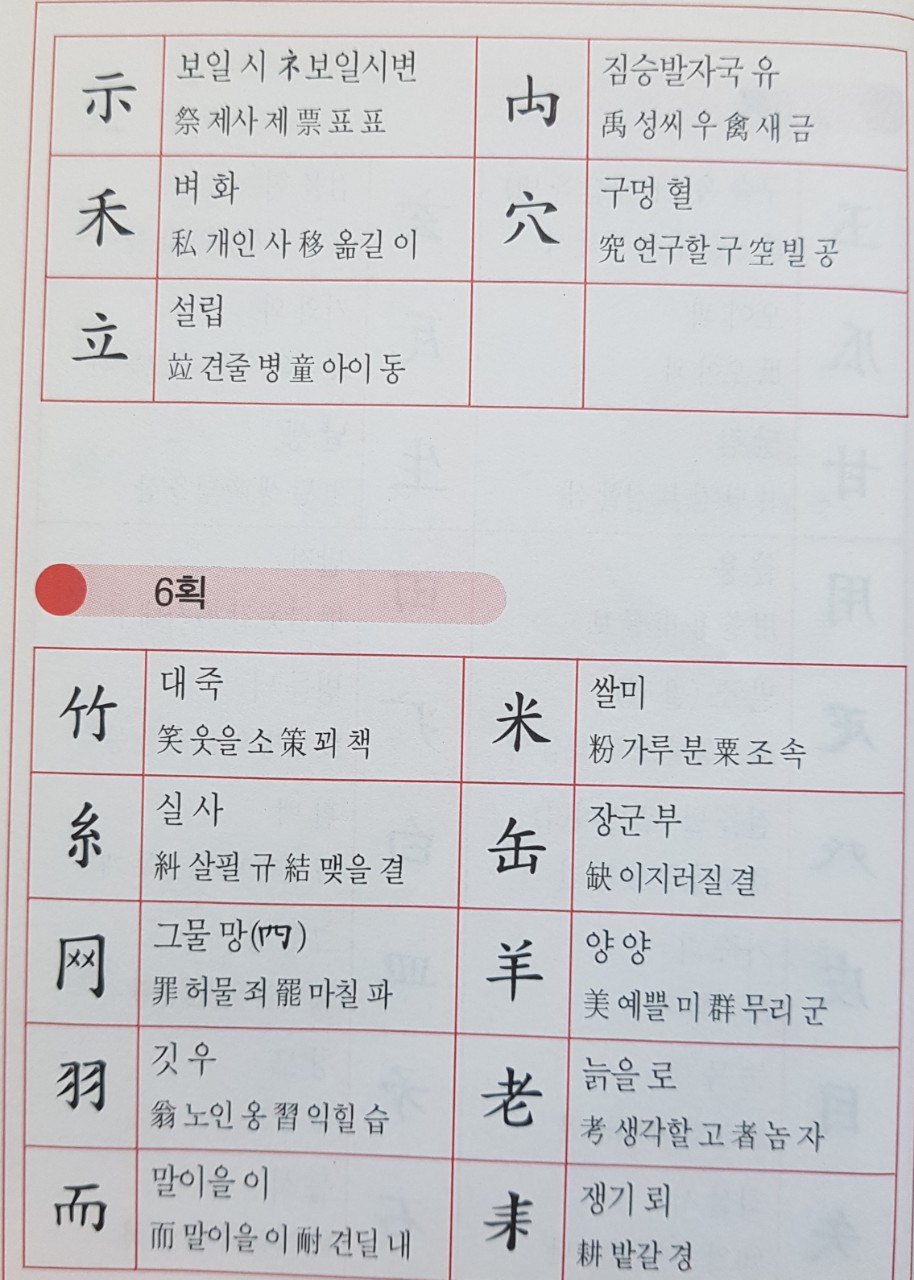 示
보일 시 礻보일시변
祭 제사 제 票 표 표
禸
짐승발자국 유
禹 성씨 우 禽 새 금
禾
벼 화
私 개인 사 移 옮길 이
穴
구멍 혈
究 연구할 구 空 빌 공
立
설립
竝 견줄 병 童 아이 동
6획
竹
대 죽
笑 웃을 소 策 꾀 책
米
쌀미
粉 가루 분 粟 조 속
糸
실 사
糾 살필 규 結 맺을 결
缶
장군 부
缺 이지러질 결
网
그물 망(罒)
罪 허물 죄 罷 마칠 파
羊
양 양
美 예쁠 미 群 무리 군
羽
깃 우
翁 노인 옹 習 익힐 습
老
늙을 로
考 생각할 고 者 놈 자
而
말이을 이
而 말이을 이 耐 견딜 내
耒
쟁기 뢰
耕 밭갈 경